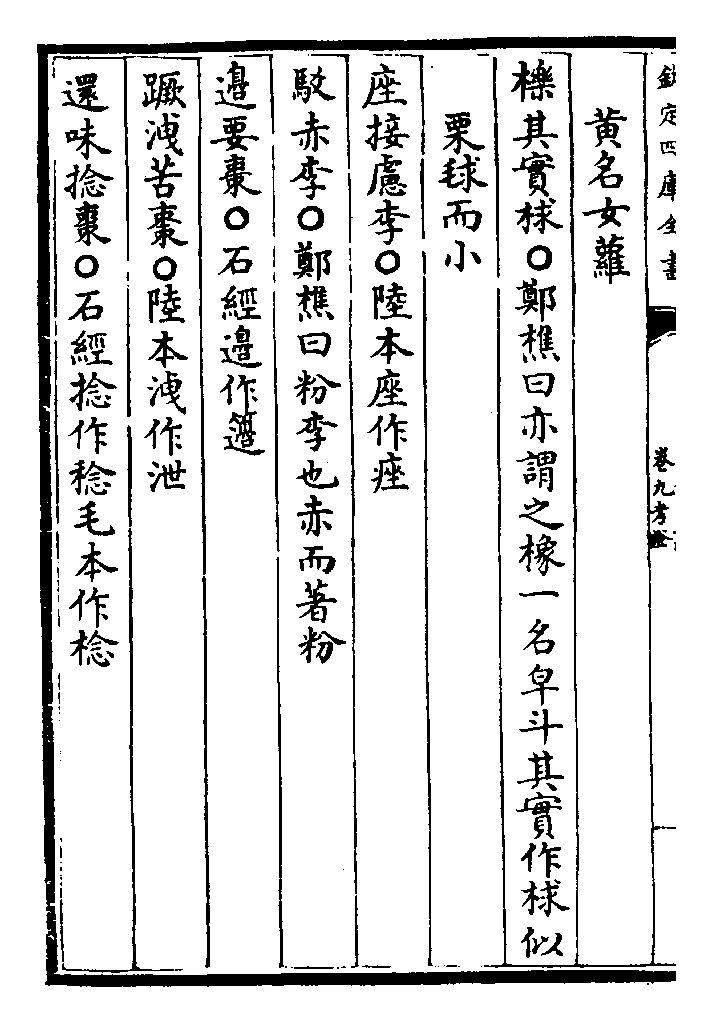 欽定四庫全書
卷九考證
黃名女蘿
櫟其實梂○鄭樵曰亦謂之橡一名皁斗其實作梂似
栗毬而小
座接慮李○陸本座作痤
駁赤李○鄭樵曰粉李也赤而著粉
邉要棗○石經邉作籩
蹶洩苦棗○陸本洩作泄
還味捻棗○石經捻作稔毛本作棯